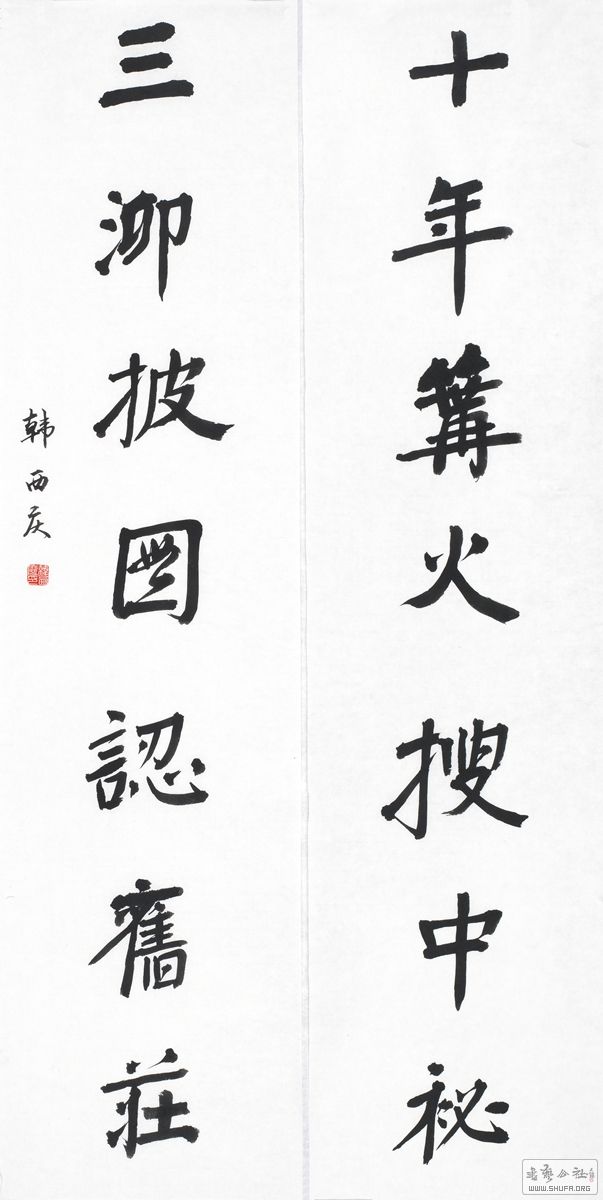 十年篝火搜中秘
三泖披圖認舊莊
韩西庆
書藝公社
WWW.SHUFA.ORG